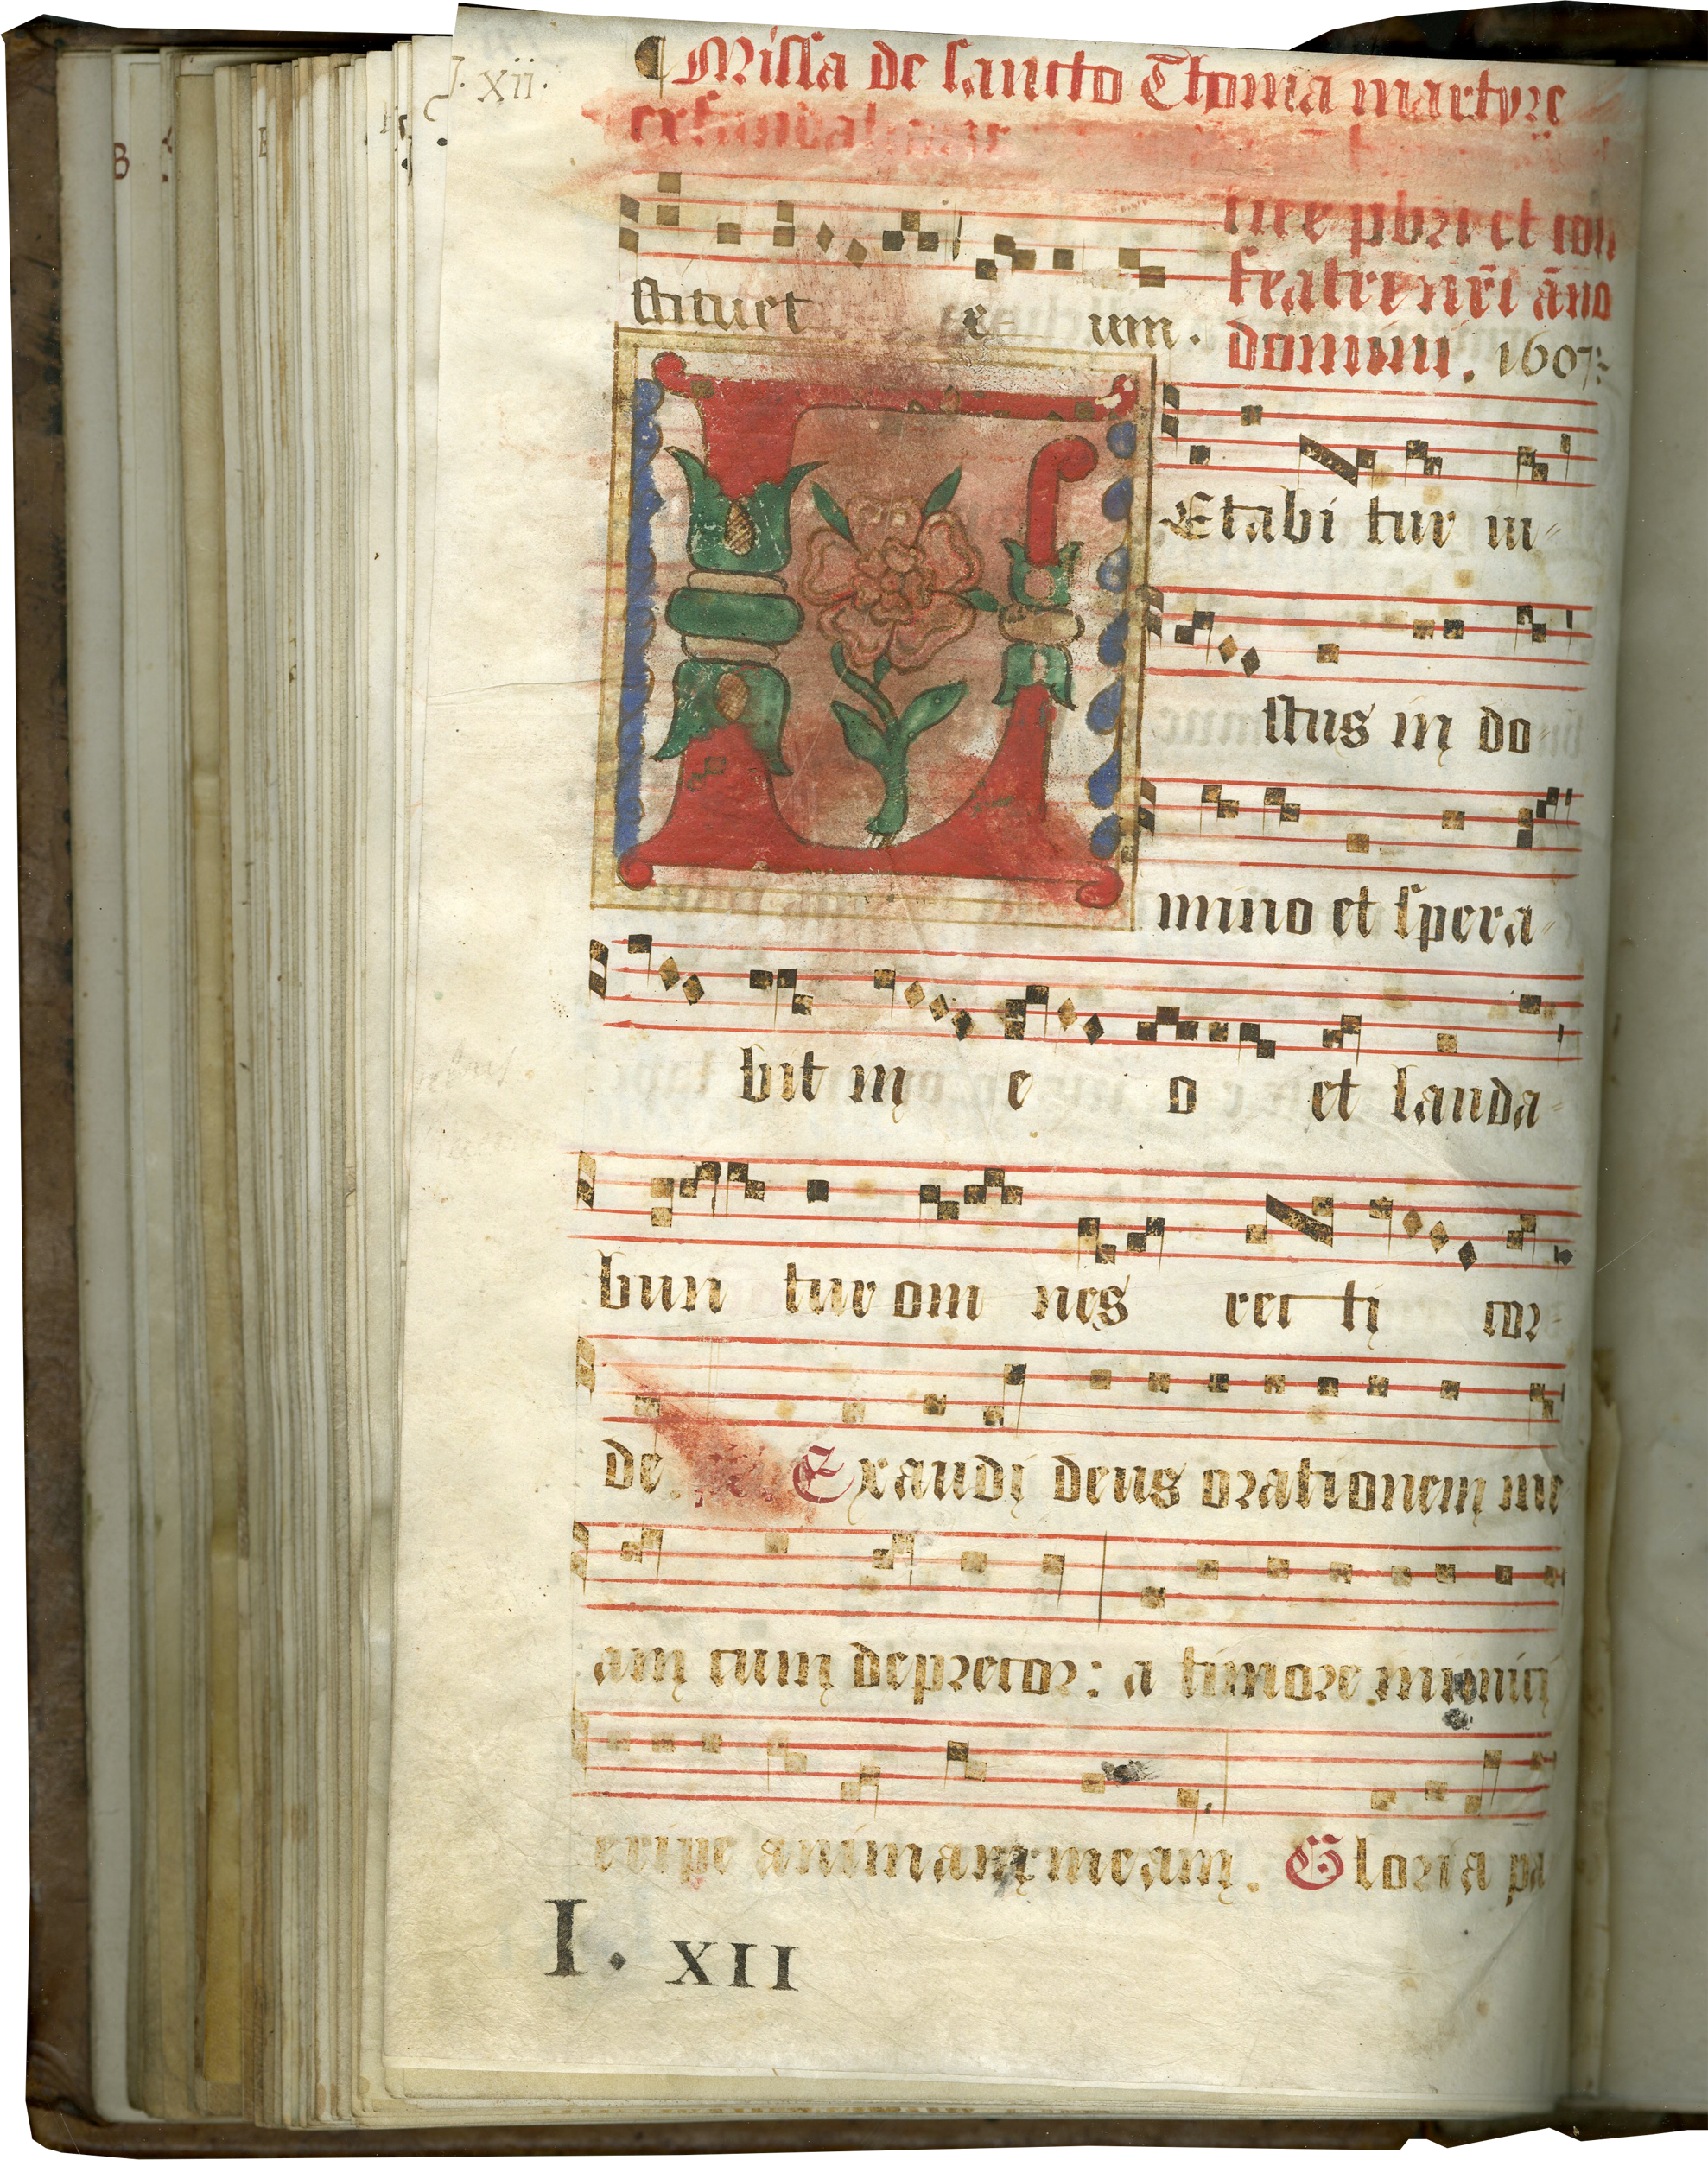 J. xii.
¶ Missa de sancto Thoma martyre
ex
stituet e um.
nre pbri et con
featre nr̄i āno
domini. 1607:
LEtabi tur iu-
stus in do-
mino et spera-
bit in e o et lauda-
bun tur om nes rec ti cor-
de. Exaudi deus orationem me
am cum deprecor: a timore inimici
eripe animam meam. Gloria pa
I. XII
B